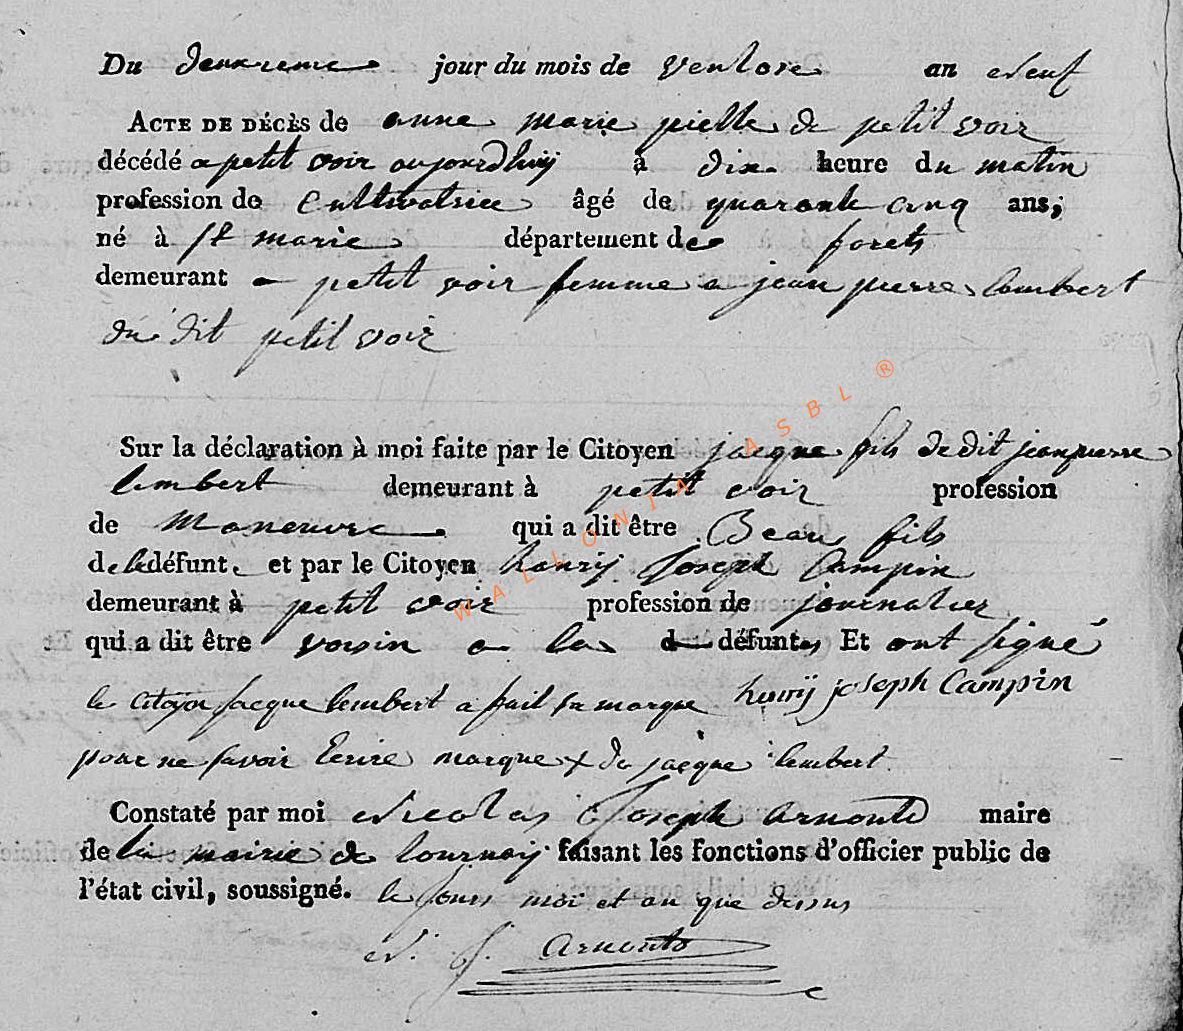 Du deuxieme jour du mois de ventose an neuf
ACTE DE DÉCÈS de anne marie pielle de petit voir
décédé a petit voir aujourdhuij à dix heure du matin
profession de Cultivatrice âgé de quarante cinq ans,
né à St marie département de forets
demeurant a petit voir femme a jean pierre lambert
du dit petit voir
Sur la déclaration à moi faite par le Citoyen jacque fils dedit jeanpierre
lembert demeurant à petit voir profession
de Maneuvre qui a dit être Beau fils
de la défunte et par le Citoyen henrij Joseph Campin
demeurant à petit voir profession de journalier
qui a dit être voisin a la d défunte Et ont signé
le Citoyen jacque lembert a fait sa marque henrij joseph Campin
pour ne savoir Ecrire marque + de jacque lembert
Constaté par moi Nicolas Joseph Arnould maire
de la mairie de tournaij faisant les fonctions d'officier public de
l'état civil, soussigné. le jours moi et an que dessus
N. J. Arnould
WALLONIA ASBL ®